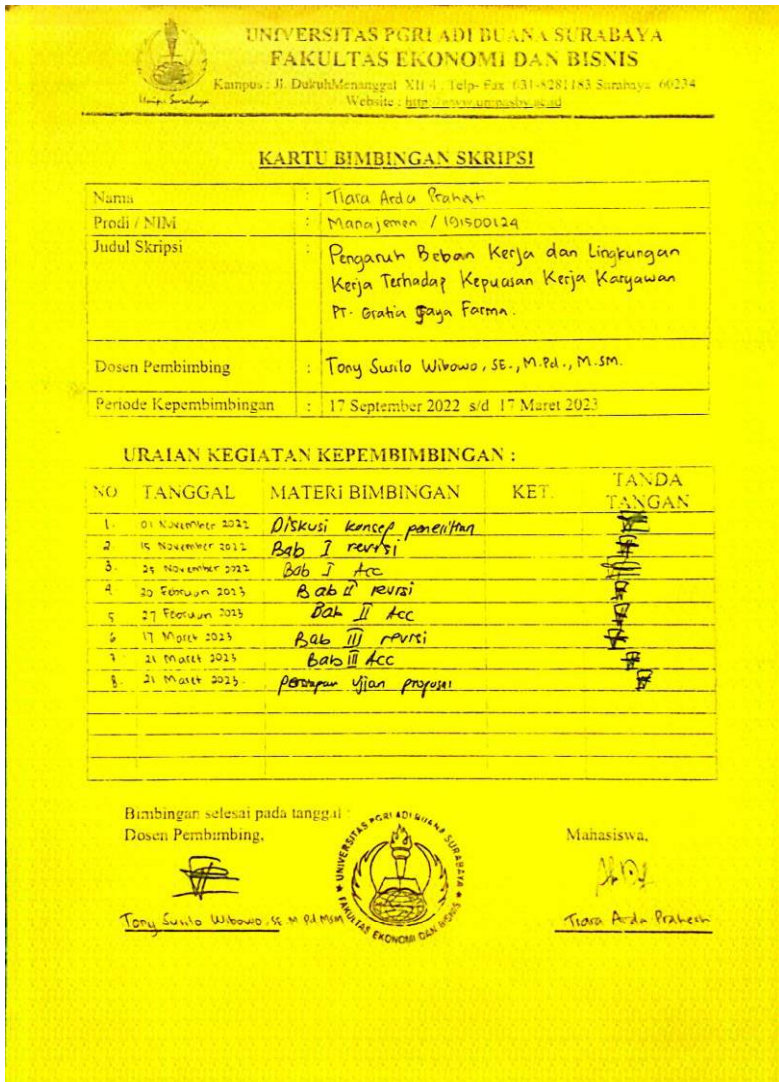 UNIVERSITAS PGRI ADI BUANA SURABAYA
FAKULTAS EKONOMI DAN BISNIS
Kampus : Jl. DukuhMenanggal XII/4, Telp- Fax 031-8281183 Surabaya 60234
Website : http://www.unipasby.ac.id
Unipa Surabaya
KARTU BIMBINGAN SKRIPSI
Nama : Tiara Arda
Prodi / NIM : Manajemen / 191500124
Judul Skripsi : Pengaruh Beban Kerja dan Lingkungan
Kerja Terhadap Kepuasan Kerja Karyawan
PT. Gratia Jaya Farma.
Dosen Pembimbing : Tony Susilo Wibowo, SE., M.Pd., M.SM.
Periode Kepembimbingan : 17 September 2022 s/d 17 Maret 2023
URAIAN KEGIATAN KEPEMBIMBINGAN :
NO TANGGAL MATERI BIMBINGAN KET. TANDA TANGAN
1. 01 November 2022 Diskusi konsep penelitian
2. 15 November 2022 Bab I revisi
3. 25 November 2022 Bab I Acc
4. 20 Februari 2023 Bab II revisi
5 27 Februari 2023 Bab II Acc
6 17 Maret 2023 Bab III revisi
7 21 Maret 2023 Bab III Acc
8. 21 Maret 2023. persiapan ujian proposal
Bimbingan selesai pada tanggal :
Dosen Pembimbing,
Mahasiswa,
UNIVERSITAS PGRI ADI BUANA SURABAYA
FAKULTAS EKONOMI DAN BISNIS
Tony Susilo Wibowo, SE M Pd MSM
Tiara Arda